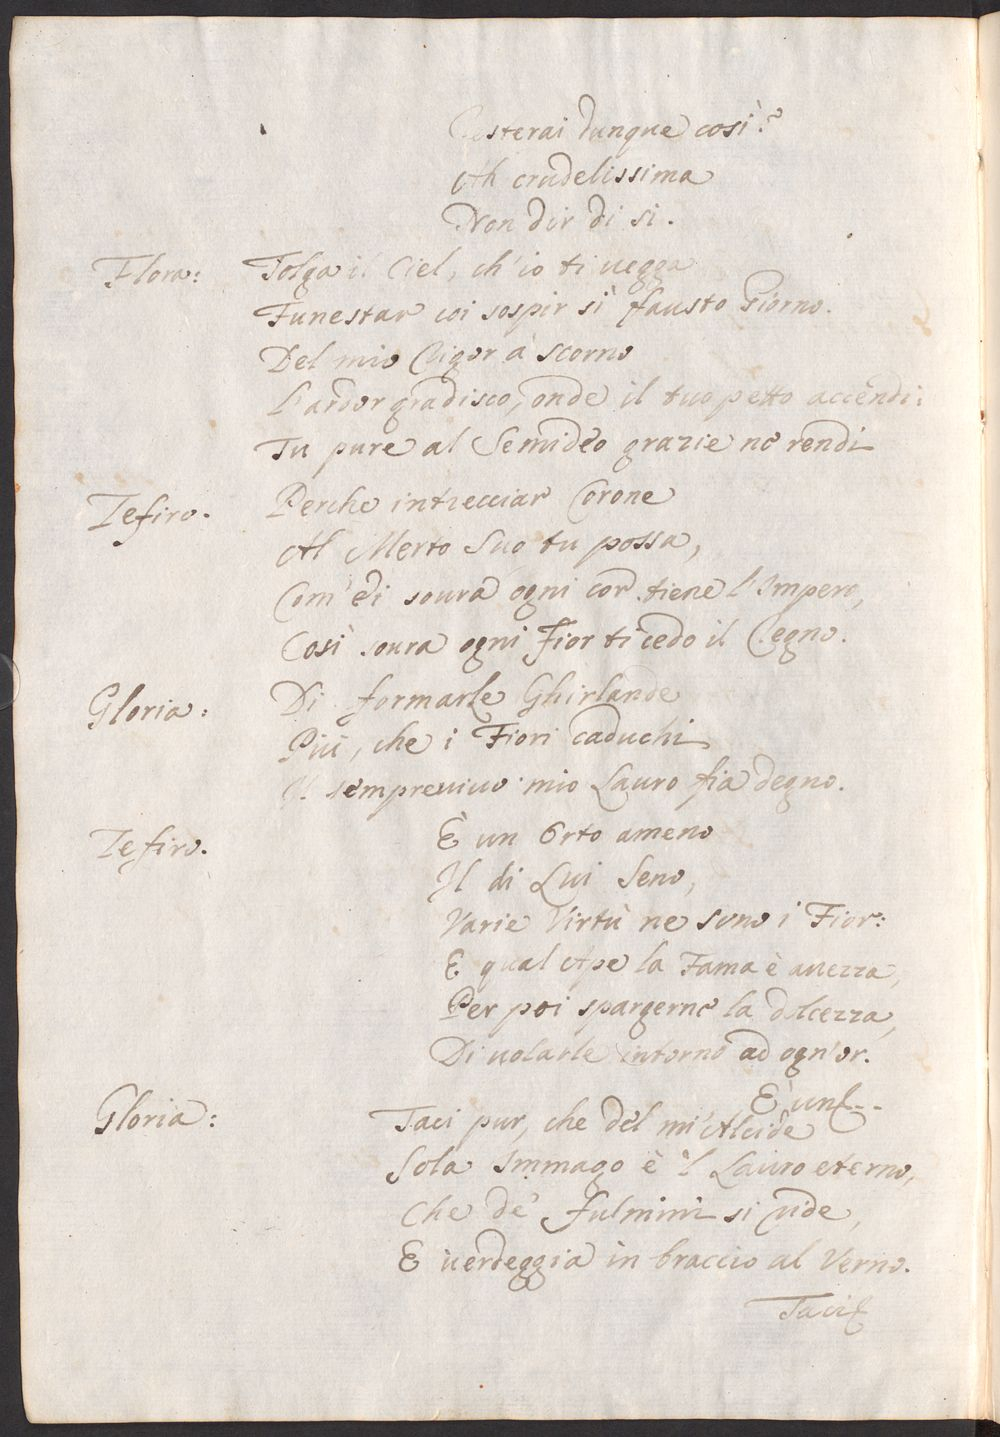 Resterai dunque così?
Ah crudelissima
Non dir di sì.
Flora: Tolga il Ciel, ch'io ti uegga
Funestar coi sospir sì fausto Giorno.
Del mio Rigor à scorno
L'ardor gradisco, onde il tuo petto accendi:
Tu pure al Semideo grazie nè rendi
Zefiro. Perche intrecciar Corone
Al Merto Suo tu possa,
Com'èi soura ogni cor tiene l'Impero,
Così soura ogni Fior ti cedo il Regno.
Gloria: Di formarle Ghirlande
Più, che i Fiori caduchi
Il sempreuiuo mio Lauro fia degno.
Zefiro. È un Orto ameno
Il di Lui Seno,
Varie Virtù ne sono i Fior:
E qual Ape la Fama è auezza,
Per poi spargerne la dolcezza,
Di uolarle intorno ad ogn'or.
È un
Gloria: Taci pur, che del mi'Alcide
Sola Immago è 'l Lauro eterno,
Che de' fulmini si ride,
E uerdeggia in braccio al Verno.
Taci